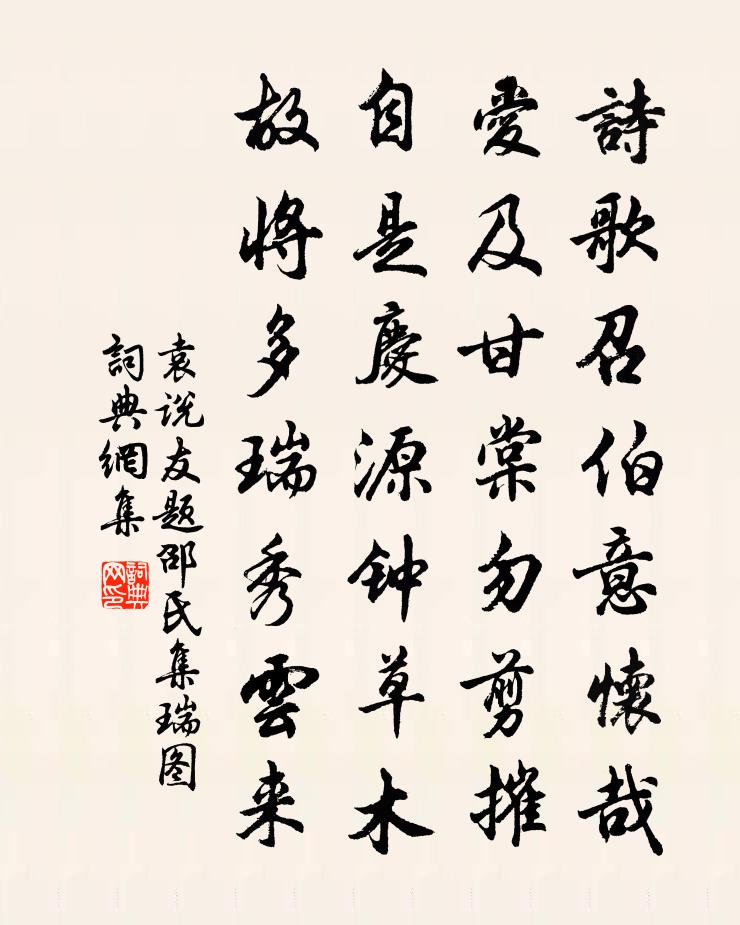 詩歌召伯意懷哉
愛及甘棠勿剪摧
自是慶源钟草木
故将多瑞秀雲来
袁说友题邵氏集瑞图
詞典網集
詞典网印